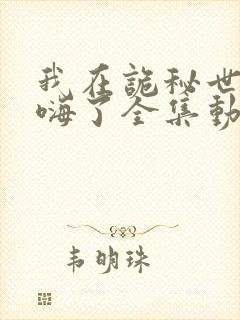 我在詭秘世
嗨了全集動
韦明珠